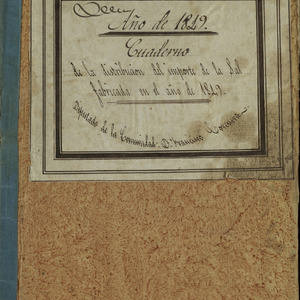 Año de 1849.
Cuaderno
de la distribucion del importe de la Sal
fabricada en el año de 1849.
Diputado de la Comunidad. D. Francisco